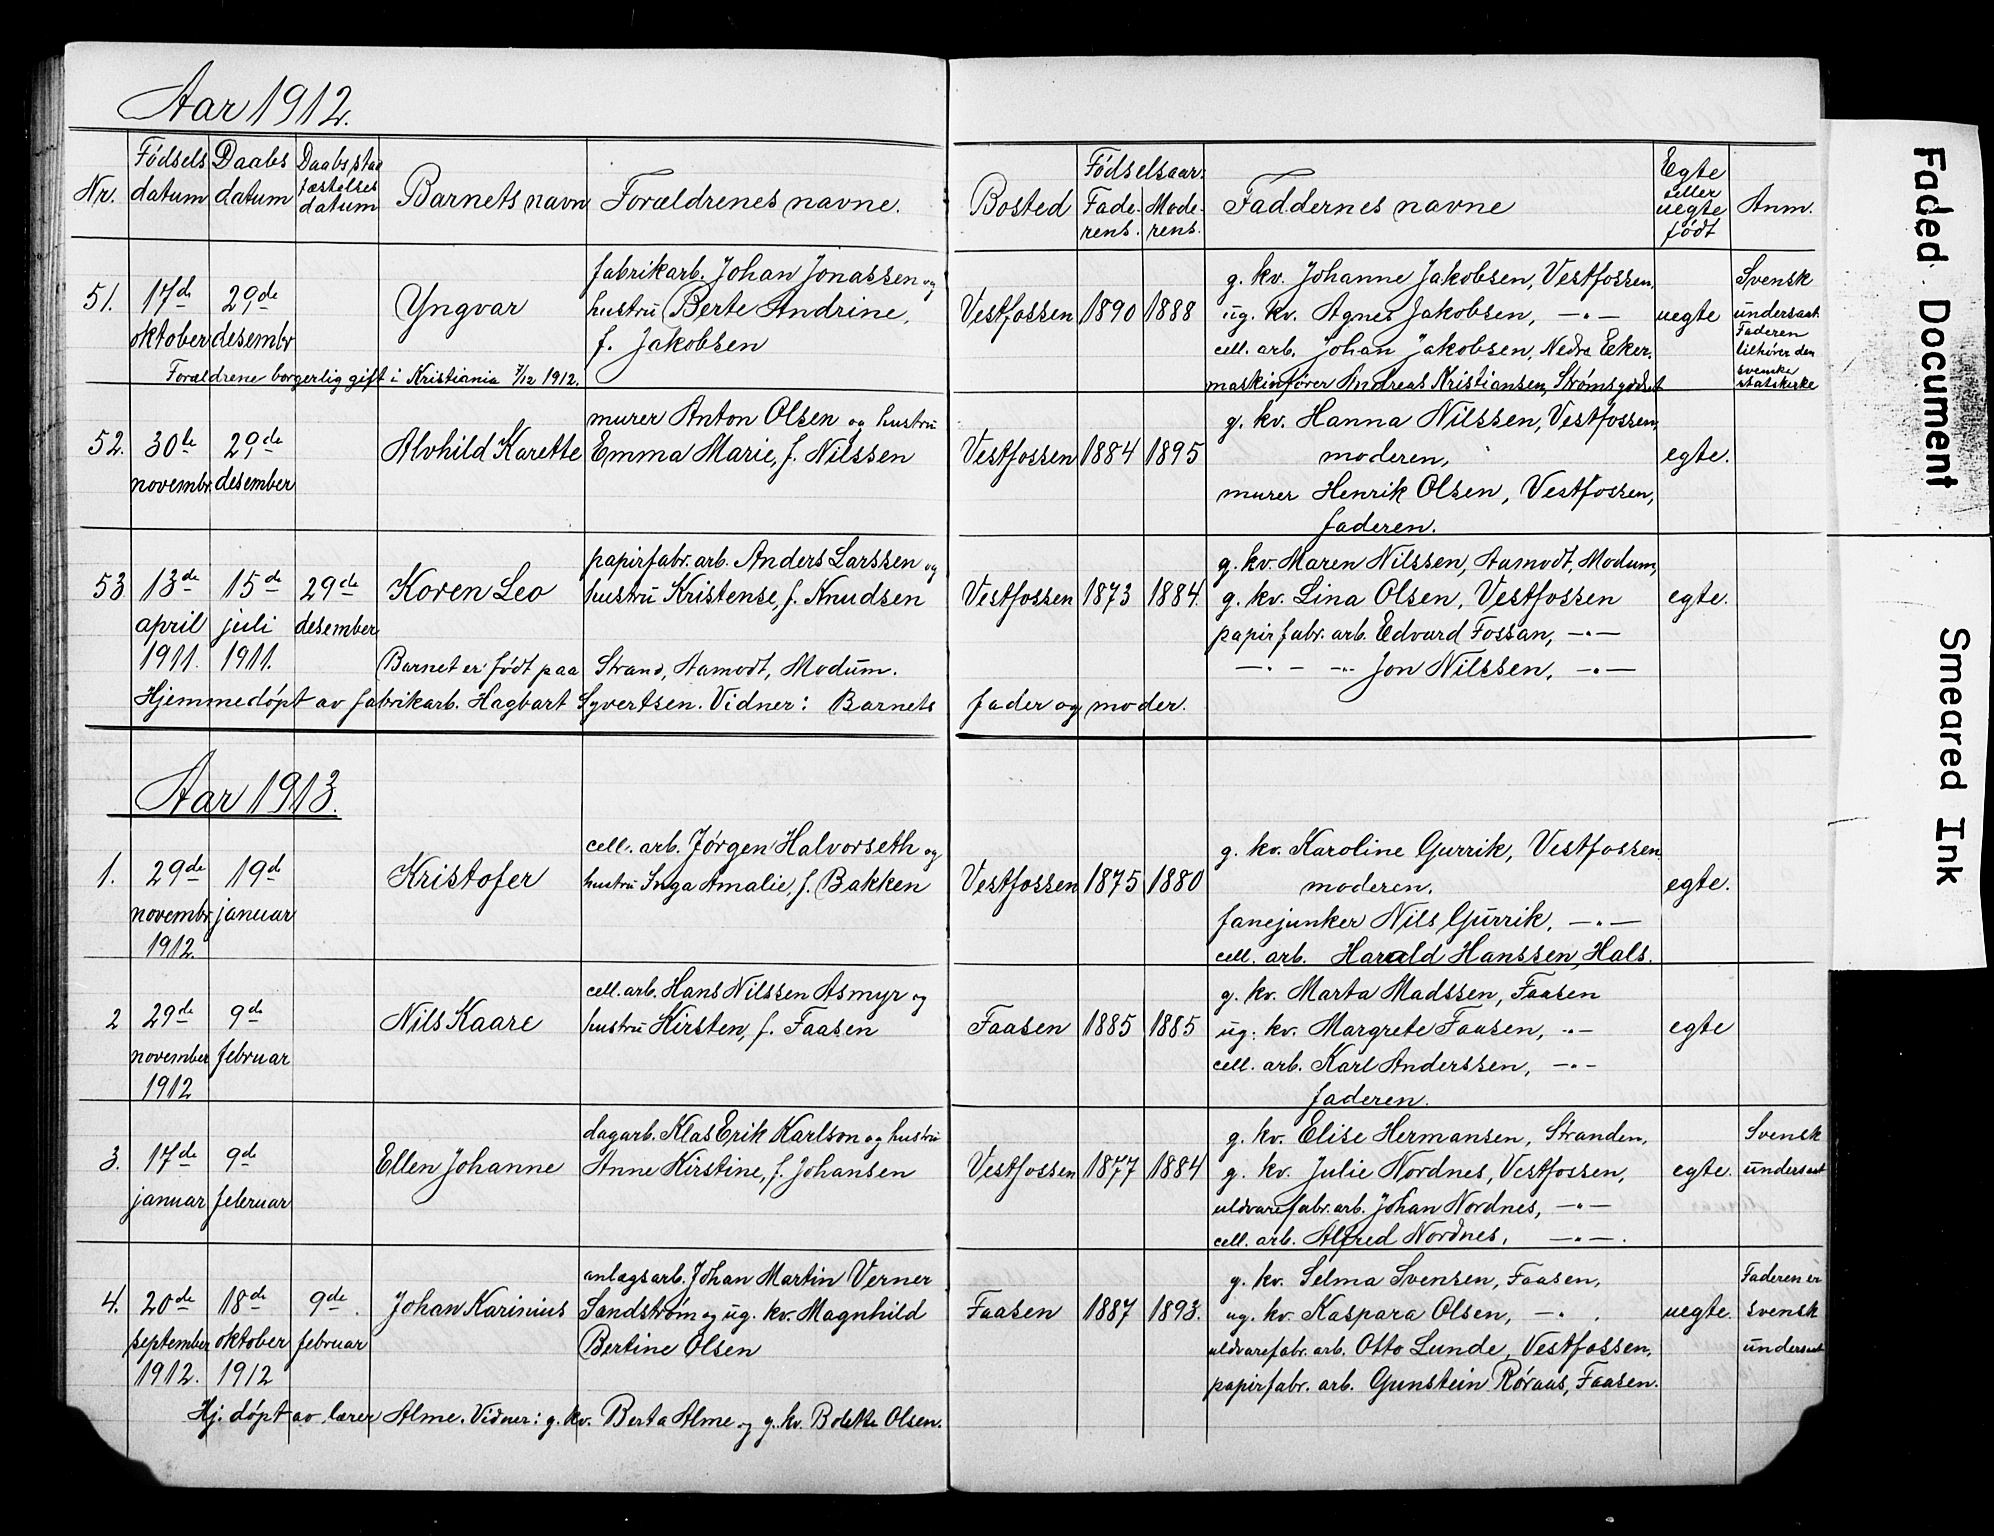 Aar 1912.
Nr. Fødsels datum Daabs datum Daabsstadfæstelses datum Barnets navn Forældrenes navne. Bosted Fødselsaar: Faderens. Moderens. Faddernes navne Egte eller uegte født Anm.
51. 17de oktober 29de desembr Yngvar
fabrikarb. Johan Jonassen og
hustru Berte Andrine,
f. Jakobsen
Vestfossen 1890 1888
g. kv. Johanne Jakobsen, Vestfossen,
ug. kv. Agnes Jakobsen, —"—
cell. arb. Johan Jakobsen, Nedre Eker,
maskinfører Andreas Kristiansen, Strømsgodset
uegte
Svensk
undersaat.
Faderen
tilhører den
svenske
statskirke
Forældrene borgerlig gift i Kristiania 7/12 1912.
52. 30te novembr 29de desember Alvhild Karette
murer Anton Olsen og hustru
Emma Marie, f. Nilssen
Vestfossen 1884 1895
g. kv. Hanna Nilssen, Vestfossen,
moderen,
murer Henrik Olsen, Vestfossen,
faderen.
egte.
53 13de april 1911. 15de juli 1911. 29de desember Koren Leo
papirfabr. arb. Anders Larssen og
hustru Kristense, f. Knudsen
Vestfossen 1873 1884.
g. kv. Maren Nilssen, Aamodt, Modum,
g. kv. Lina Olsen, Vestfossen
papirfabr. arb. Edvard Fossan, —"—
—"— —"— Jon Nilssen, —"—
egte.
Barnet er født paa Strand, Aamodt, Modum.
Hjemmedøpt av fabrikarb. Hagbart Syvertsen. Vidner: Barnets fader og moder.
Aar 1913.
1. 29de novembr 1912. 19de januar Kristofer
cell. arb. Jørgen Halvorseth og
hustru Inga Amalie, f. Bakken
Vestfossen 1875 1880
g. kv. Karoline Gurrik, Vestfossen
moderen.
fanejunker Nils Gurrik, —"—
cell. arb. Harald Hanssen, Hals.
egte.
2 29de november 1912 9de februar Nils Kaare
cell. arb. Hans Nilssen Asmyr og
hustru Kirsten, f. Faasen
Faasen 1885 1885
g. kv. Marta Madssen, Faasen
ug. kv. Margrete Faasen, —"—
cell. arb. Karl Anderssen, —"—
faderen.
egte
3. 17de januar 9de februar Ellen Johanne
dagarb. Klas Erik Karlson og hustru
Anne Kirstine, f. Johansen
Vestfossen 1877 1884
g. kv. Elise Hermansen, Stranden,
g. kv. Julie Nordnes, Vestfossen,
uldvarefabr. arb. Johan Nordnes, —"—
cell. arb. Alfred Nordnes, —"—.
egte.
Svensk
undersaat
4. 20de september 1912. 18de oktober 1912 9de februar Johan Karinius
anlægsarb. Johan Martin Verner
Sandstrøm og ug. kv. Magnhild
Bertine Olsen
Faasen 1887 1893.
g. kv. Selma Svensen, Faasen,
ug. kv. Kaspara Olsen, —"
uldvarefabr. arb. Otto Lunde, Vestfossen,
papirfabr. arb. Gunstein Røraas, Faasen.
uegte.
Faderen er
svensk
undersaat
Hj. døpt av lærer Alme. Vidner: g. kv. Berta Alme og g. kv. Bolette Olsen.
Faded Document
Smeared Ink